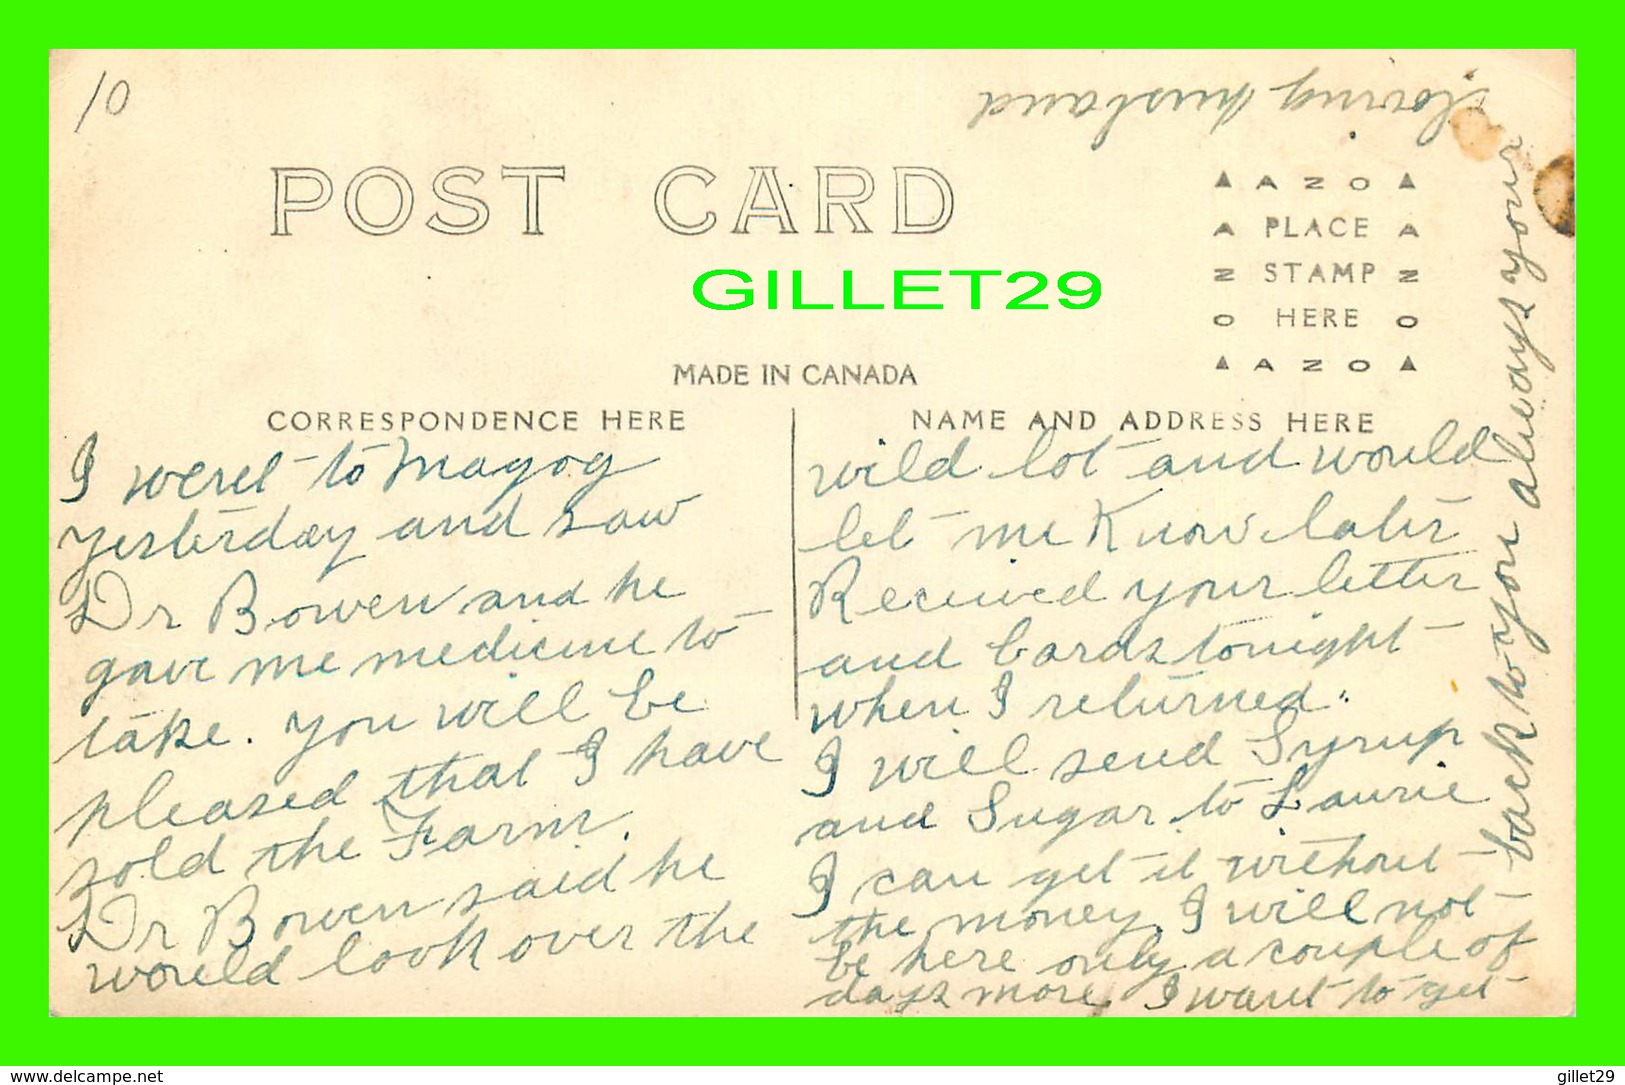 10
POST CARD
GILLET29
MADE IN CANADA
CORRESPONDENCE HERE
NAME AND ADDRESS HERE
AZO
PLACE
STAMP
HERE
AZO
I went to Magog
yesterday and saw
Dr Bowen and he
gave me medicine to
take. you will be
pleased that I have
sold the Farm.
Dr Bowen said he
would look over the
wild lot and would
let me Know later
Received your letter
and cards tonight
when I returned.
I will send Syrup
and Sugar to Laurie
I can get it without
the money. I will not
be here only a couple of
days more, I want to get
back to you always your
loving husband
www.delcampe.net
gillet29